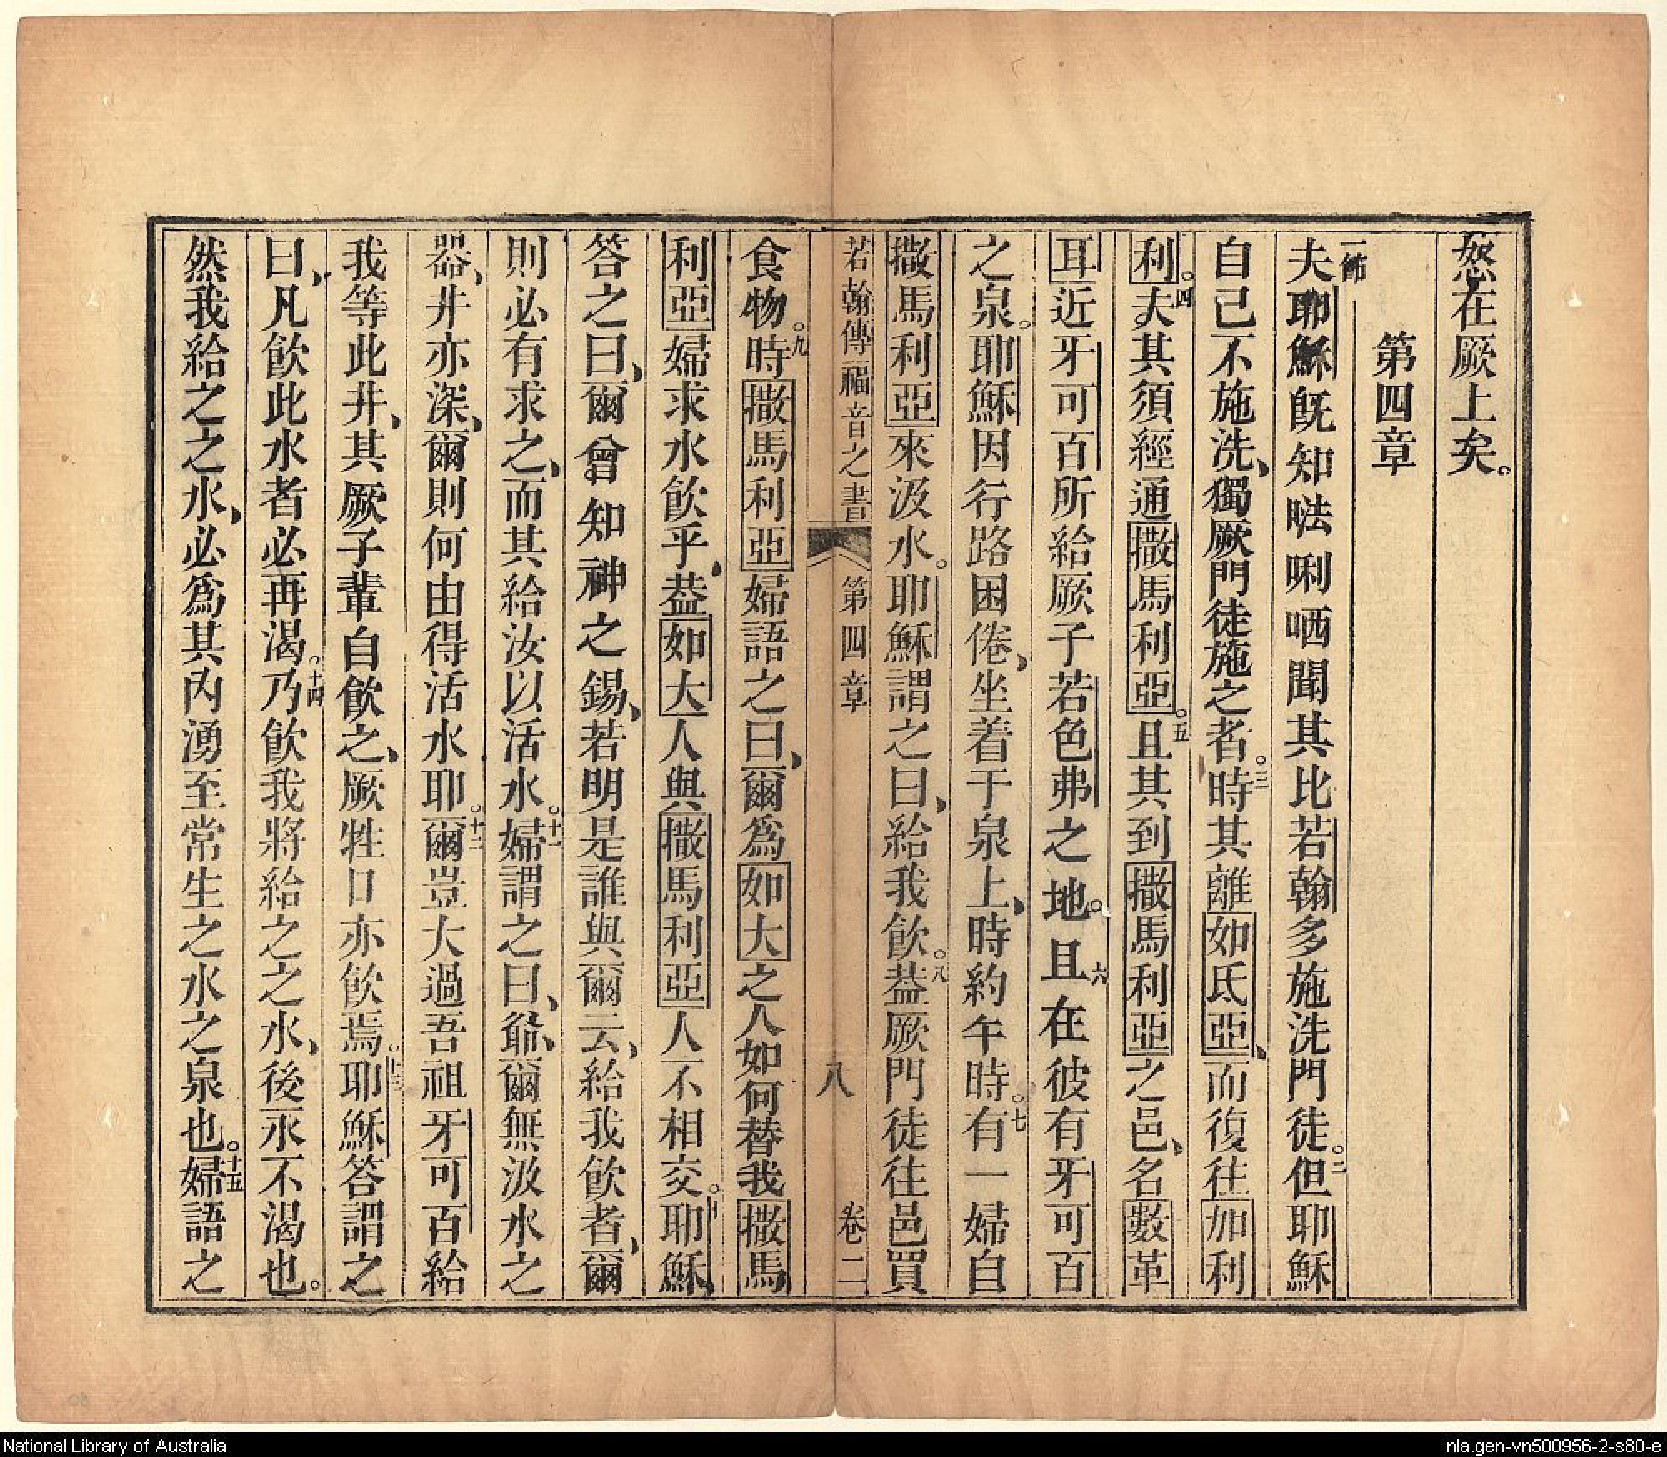 怒在厥上矣。
第四章
一節
夫耶穌旣知𠵽唎哂聞其比若翰多施洗門徒。二但耶穌
自己不施洗、獨厥門徒施之者。三時其離如氐亞、而復往加利
利。四夫其須經通撒馬利亞。五且其到撒馬利亞之邑、名數革
耳近牙可百所給厥子若色弗之地。六且在彼有牙可百
之泉。耶穌因行路困倦、坐着于泉上、時約午時。七有一婦自
撒馬利亞來汲水。耶穌謂之曰、給我飲。八葢厥門徒往邑買
若翰傳福音之書 第四章 八 卷二
食物。九時撒馬利亞婦語之曰、爾爲如大之人如何替我撒馬
利亞婦求水飲乎、葢如大人與撒馬利亞人不相交。十耶穌
答之曰、爾曾知神之錫、若明是誰與爾云、給我飲者、爾
則必有求之、而其給汝以活水。十一婦謂之曰、爺、爾無汲水之
器、井亦深、爾則何由得活水耶。十二爾豈大過吾祖牙可百給
我等此井、其厥子輩自飲之、厥牲口亦飲焉。十三耶穌答謂之
曰、凡飲此水者必再渴。十四乃飲我將給之之水、後永不渴也。
然我給之之水、必爲其內湧至常生之水之泉也。十五婦語之
National Library of Australia
nla.gen-vn500956-2-s80-e